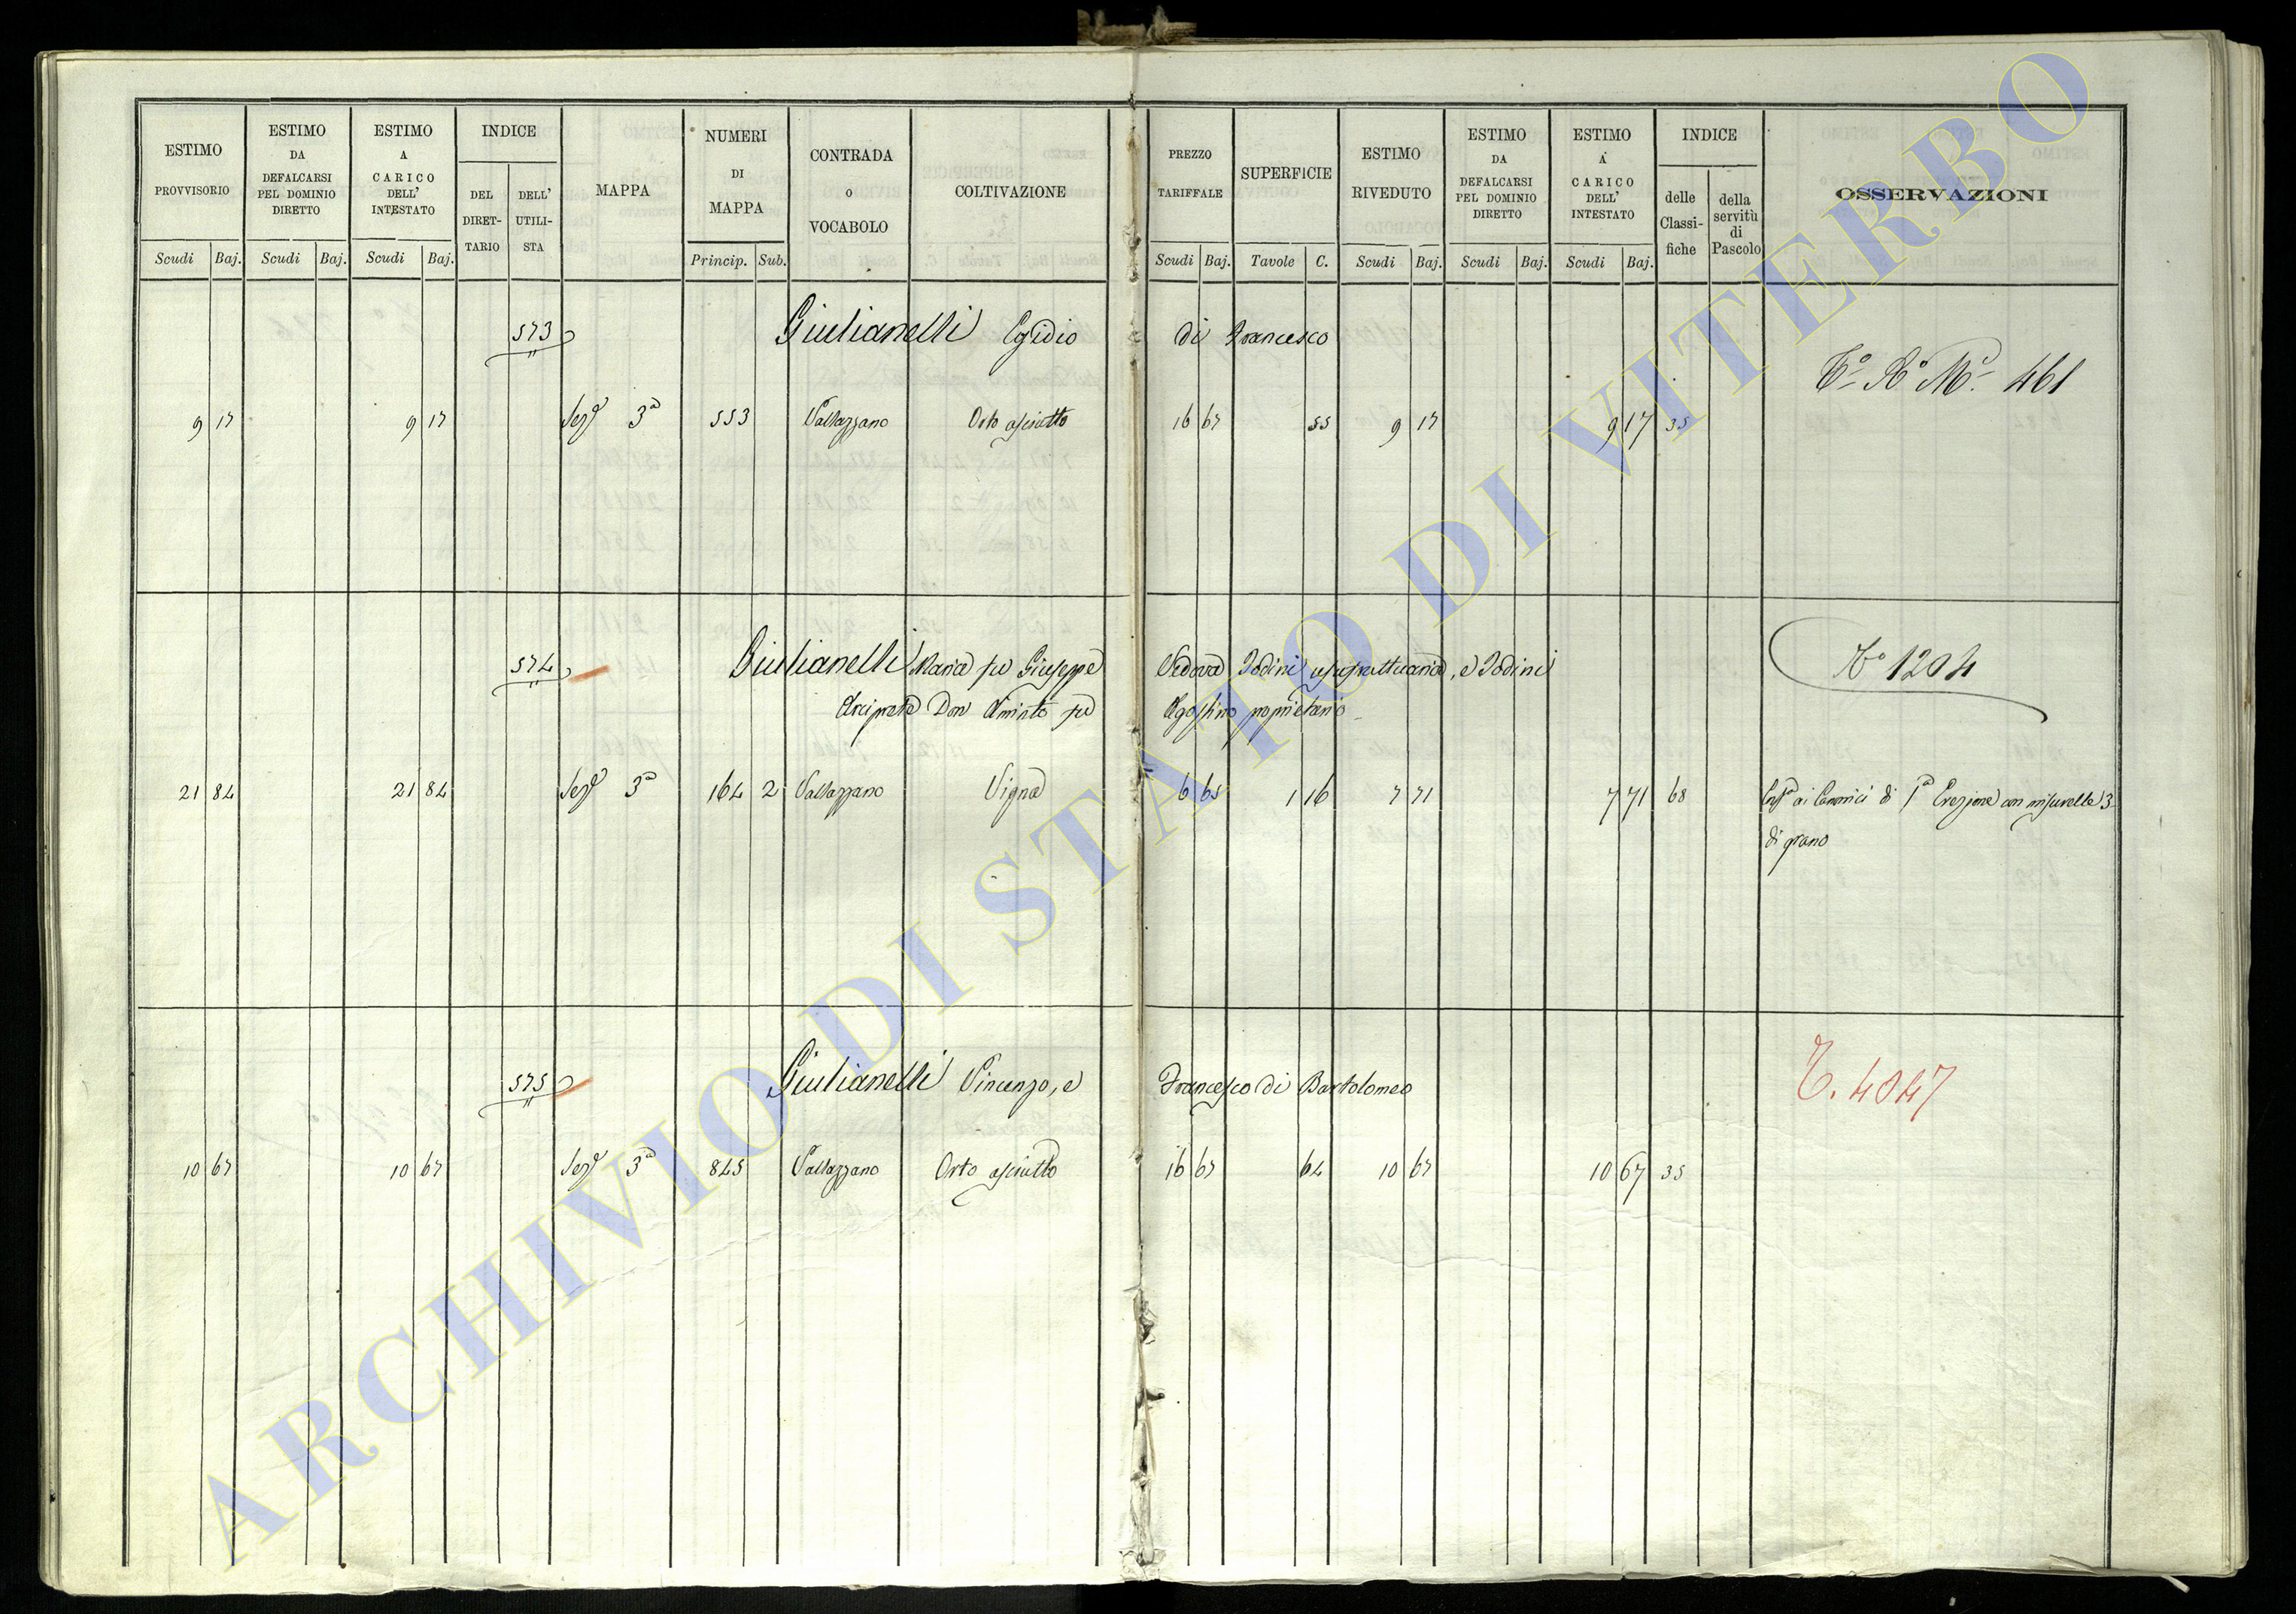 ESTIMO PROVVISORIO Scudi Baj.
ESTIMO DA DEFALCARSI PEL DOMINIO DIRETTO Scudi Baj.
ESTIMO A CARICO DELL' INTESTATO Scudi Baj.
INDICE DEL DIRET-TARIO DELL' UTILI-STA
MAPPA
NUMERI DI MAPPA Princip. Sub.
CONTRADA o VOCABOLO
COLTIVAZIONE
PREZZO TARIFFALE Scudi Baj.
SUPERFICIE Tavole C.
ESTIMO RIVEDUTO Scudi Baj.
ESTIMO DA DEFALCARSI PEL DOMINIO DIRETTO Scudi Baj.
ESTIMO A CARICO DELL' INTESTATO Scudi Baj.
INDICE delle Classi-fiche della servitù di Pascolo
OSSERVAZIONI
573 Giulianelli Egidio di Francesco
461
9 17 9 17 Sezᵉ 3ᵃ 553 Vallazzano Orto asciutto 16 67 55 9 17 9 17 35
574 Giulianelli Maria fu Giuseppe Vedova Iodini usufruttuaria, e Iodini
Nº 1204
Arciprete Don Aminto fu Agostino proprietario
21 84 21 84 Sezᵉ 3ᵃ 164 2 Vallazzano Vigna 6 65 1 16 7 71 7 71 68 ai Canonici di 1ᵃ Erezione con misurelle 3
di grano
575 Giulianelli Vincenzo, e Francesco di Bartolomeo
T. 4047
10 67 10 67 Sezᵉ 3ᵃ 845 Vallazzano Orto asciutto 16 67 64 10 67 10 67 35
ARCHIVIO DI STATO DI VITERBO